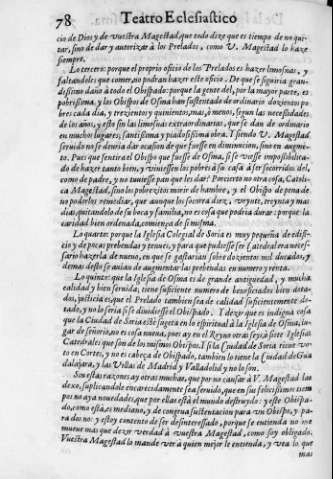 78 Teatro Eclesiastico
cio de Dios y de vuestra Magestad, que todo dize que es tiempo de no qui-
tar, sino de dar y autorizar à los Prelados, como V. Magestad lo haze
siempre.
Lo tercero: porque el proprio oficio de los Prelados es hazer limosnas, y
faltandoles que comer, no podran hazer este oficio. De que se siguiria gran-
dissimo daño à todo el Obispado: porque la gente del, por la mayor parte, es
pobrissima, y los Obispos de Osma han sustentado de ordinario dozientos po
bres cada dia, y trezientos y quinientos, mas, ò menos, segun las necessidades
de los años, y esto sin las limosnas extraordinarias, que se dan de ordinario
en muchos lugares, santissima y piadosissima obra. Y siendo V. Magestad
seruido no se deuria dar ocasion de que fuesse en diminucion, sino en augmẽ-
to. Pues que sentirà el Obispo que fuesse de Osma, si se viesse impossibilita-
do de hazer tanto bien, y viniessen los pobres à su casa à ser socorridos del,
como de padre, y no tuuiesse pan que les dar? Parecierto no otra cosa, Catoli-
ca Magestad, sino los pobrezitos morir de hambre, y el Obispo de pena de
no poderlos remediar, que aunque los socorra diez, veynte, treynta y mas
dias, quitandolo de su boca y familia, no es cosa que podria durar: porque la
caridad bien ordenada, comiença de si misma.
Lo quarto: porque la Iglesia Colegial de Soria es muy pequeña de edifi-
cio y de pocas prebendas y prouẽtos, y para que pudiesse ser Catedral era neces-
sario hazerla de nueuo, en que se gastarian sobre dozientos mil ducados, y
demas desto se auian de augmentar las prebendas en numero y renta.
Lo quinto: que la Iglesia de Osma es de grande antiguedad, y mucha
calidad y bien seruida, tiene suficiente numero de beneficiados bien dota-
dos, justicia es, que el Prelado tambien sea de calidad suficientemente do-
tado, y no lo seria si se diuidiesse el Obispado. Y dezir que es indigna cosa
que la Ciudad de Soria estè sugeta en lo espiritual à la Iglesia de Osma, lu-
gar de señorio, no es cosa nueua, pues ay en el Reyno otras seys ò siete Iglesias
Catedrales que son de los mismos Obispos. Y si la Ciudad de Soria tiene vo-
to en Cortes, y no es cabeça de Obispado, tambien lo tiene la Ciudad de Gua
dalajara, y las Villas de Madrid y Valladolid y no lo son.
Son estas razones, ay otras muchas, que por no cansar à V. Magestad las
dexo, suplicandole encarecidamente sea seruido, que en sus felicissimos tiem
pos no aya nouedades, que por ellas està el mundo destruydo: y este Obispa-
do, como està, es mediano, y de congrua sustentacion para vn Obispo, y pa-
ra dos no: y estoy contento de ser desinteressado, porque se entienda no me
mueue mas que dezir verdad à vuestra Magestad, como soy obligado.
Vuestra Magestad lo mande ver à quien mejor le entienda, y vea lo que
mas